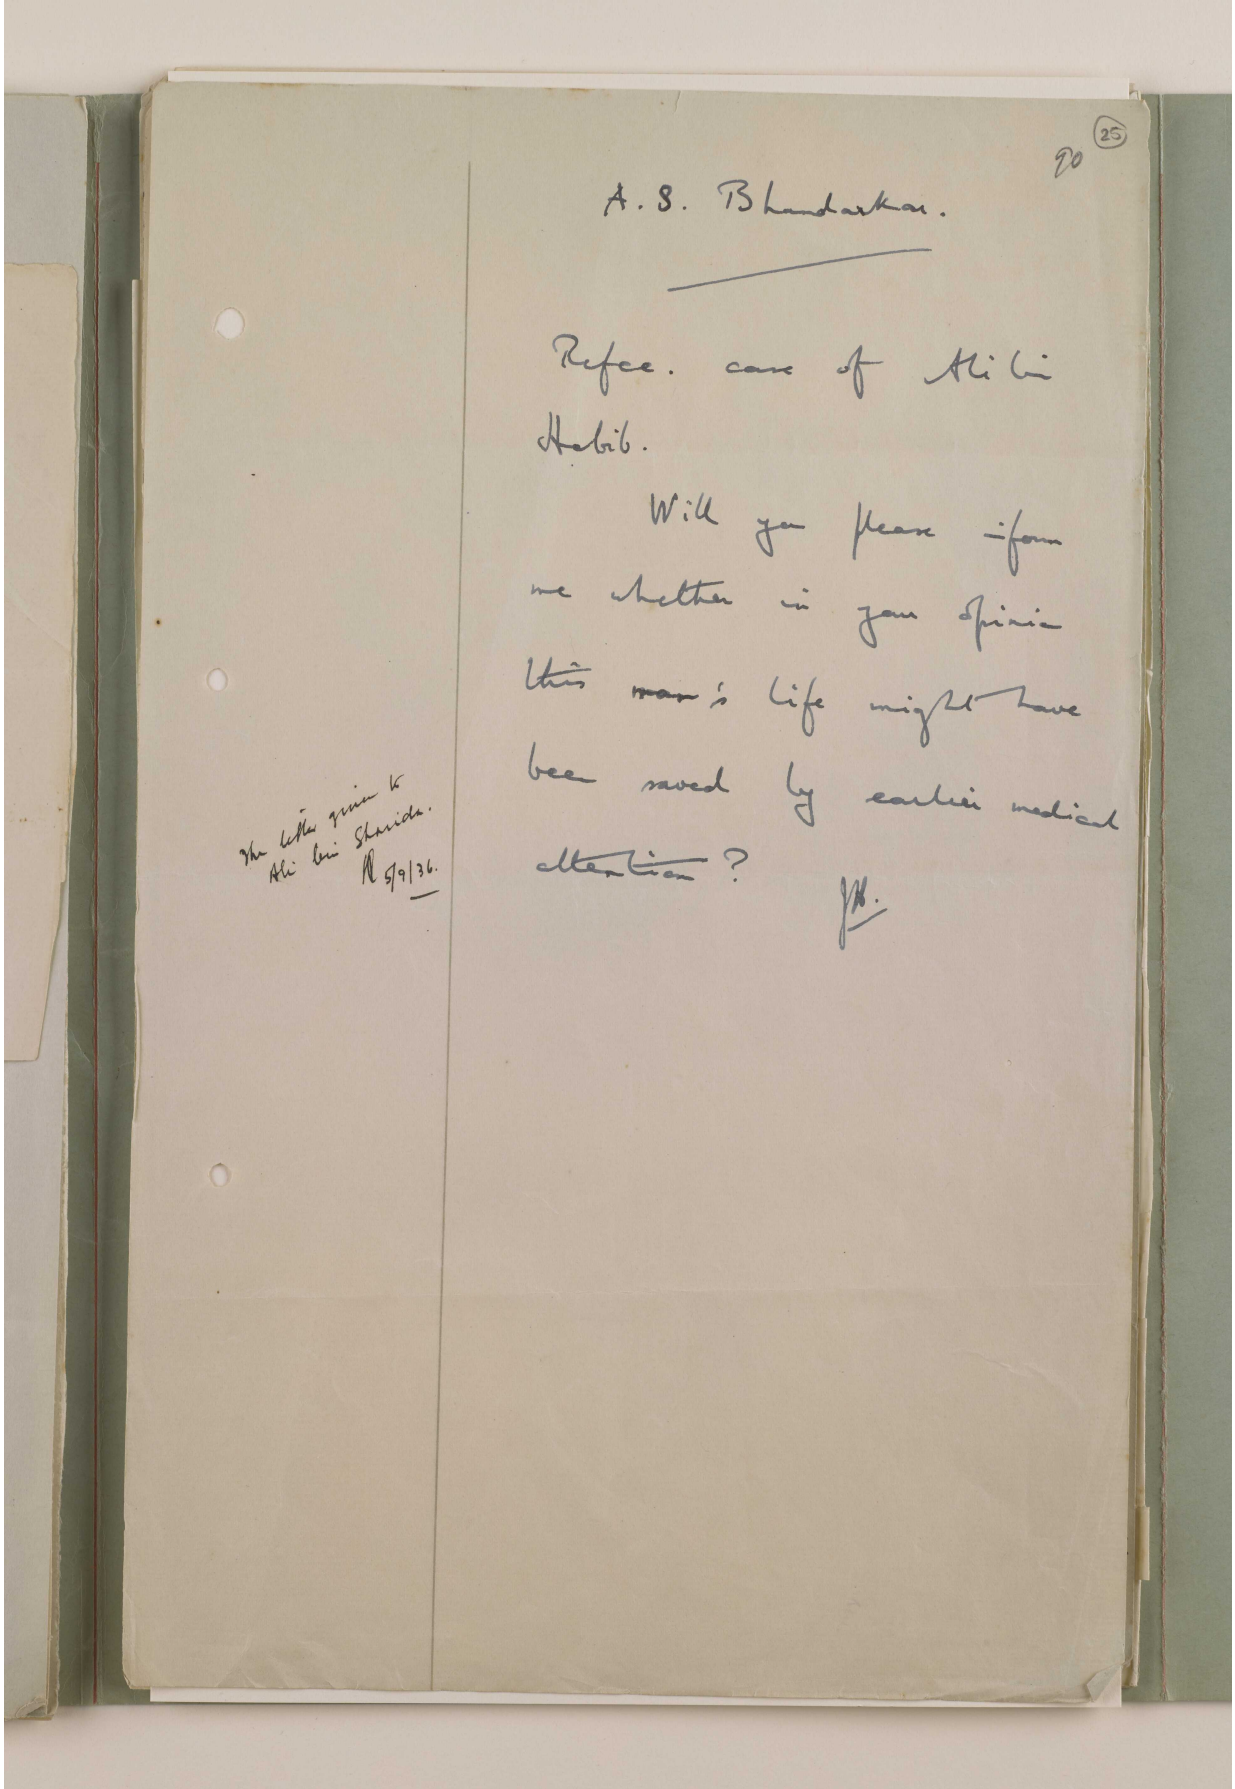 25
90
A. S. Bhandarkar.
Refce. case of Ali bin
Habib.
Will you please inform
me whether in your opinion
this man's life might have
been saved by earlier medical
attention?
The letter given to
Ali bin Sharida.
5/9/36.